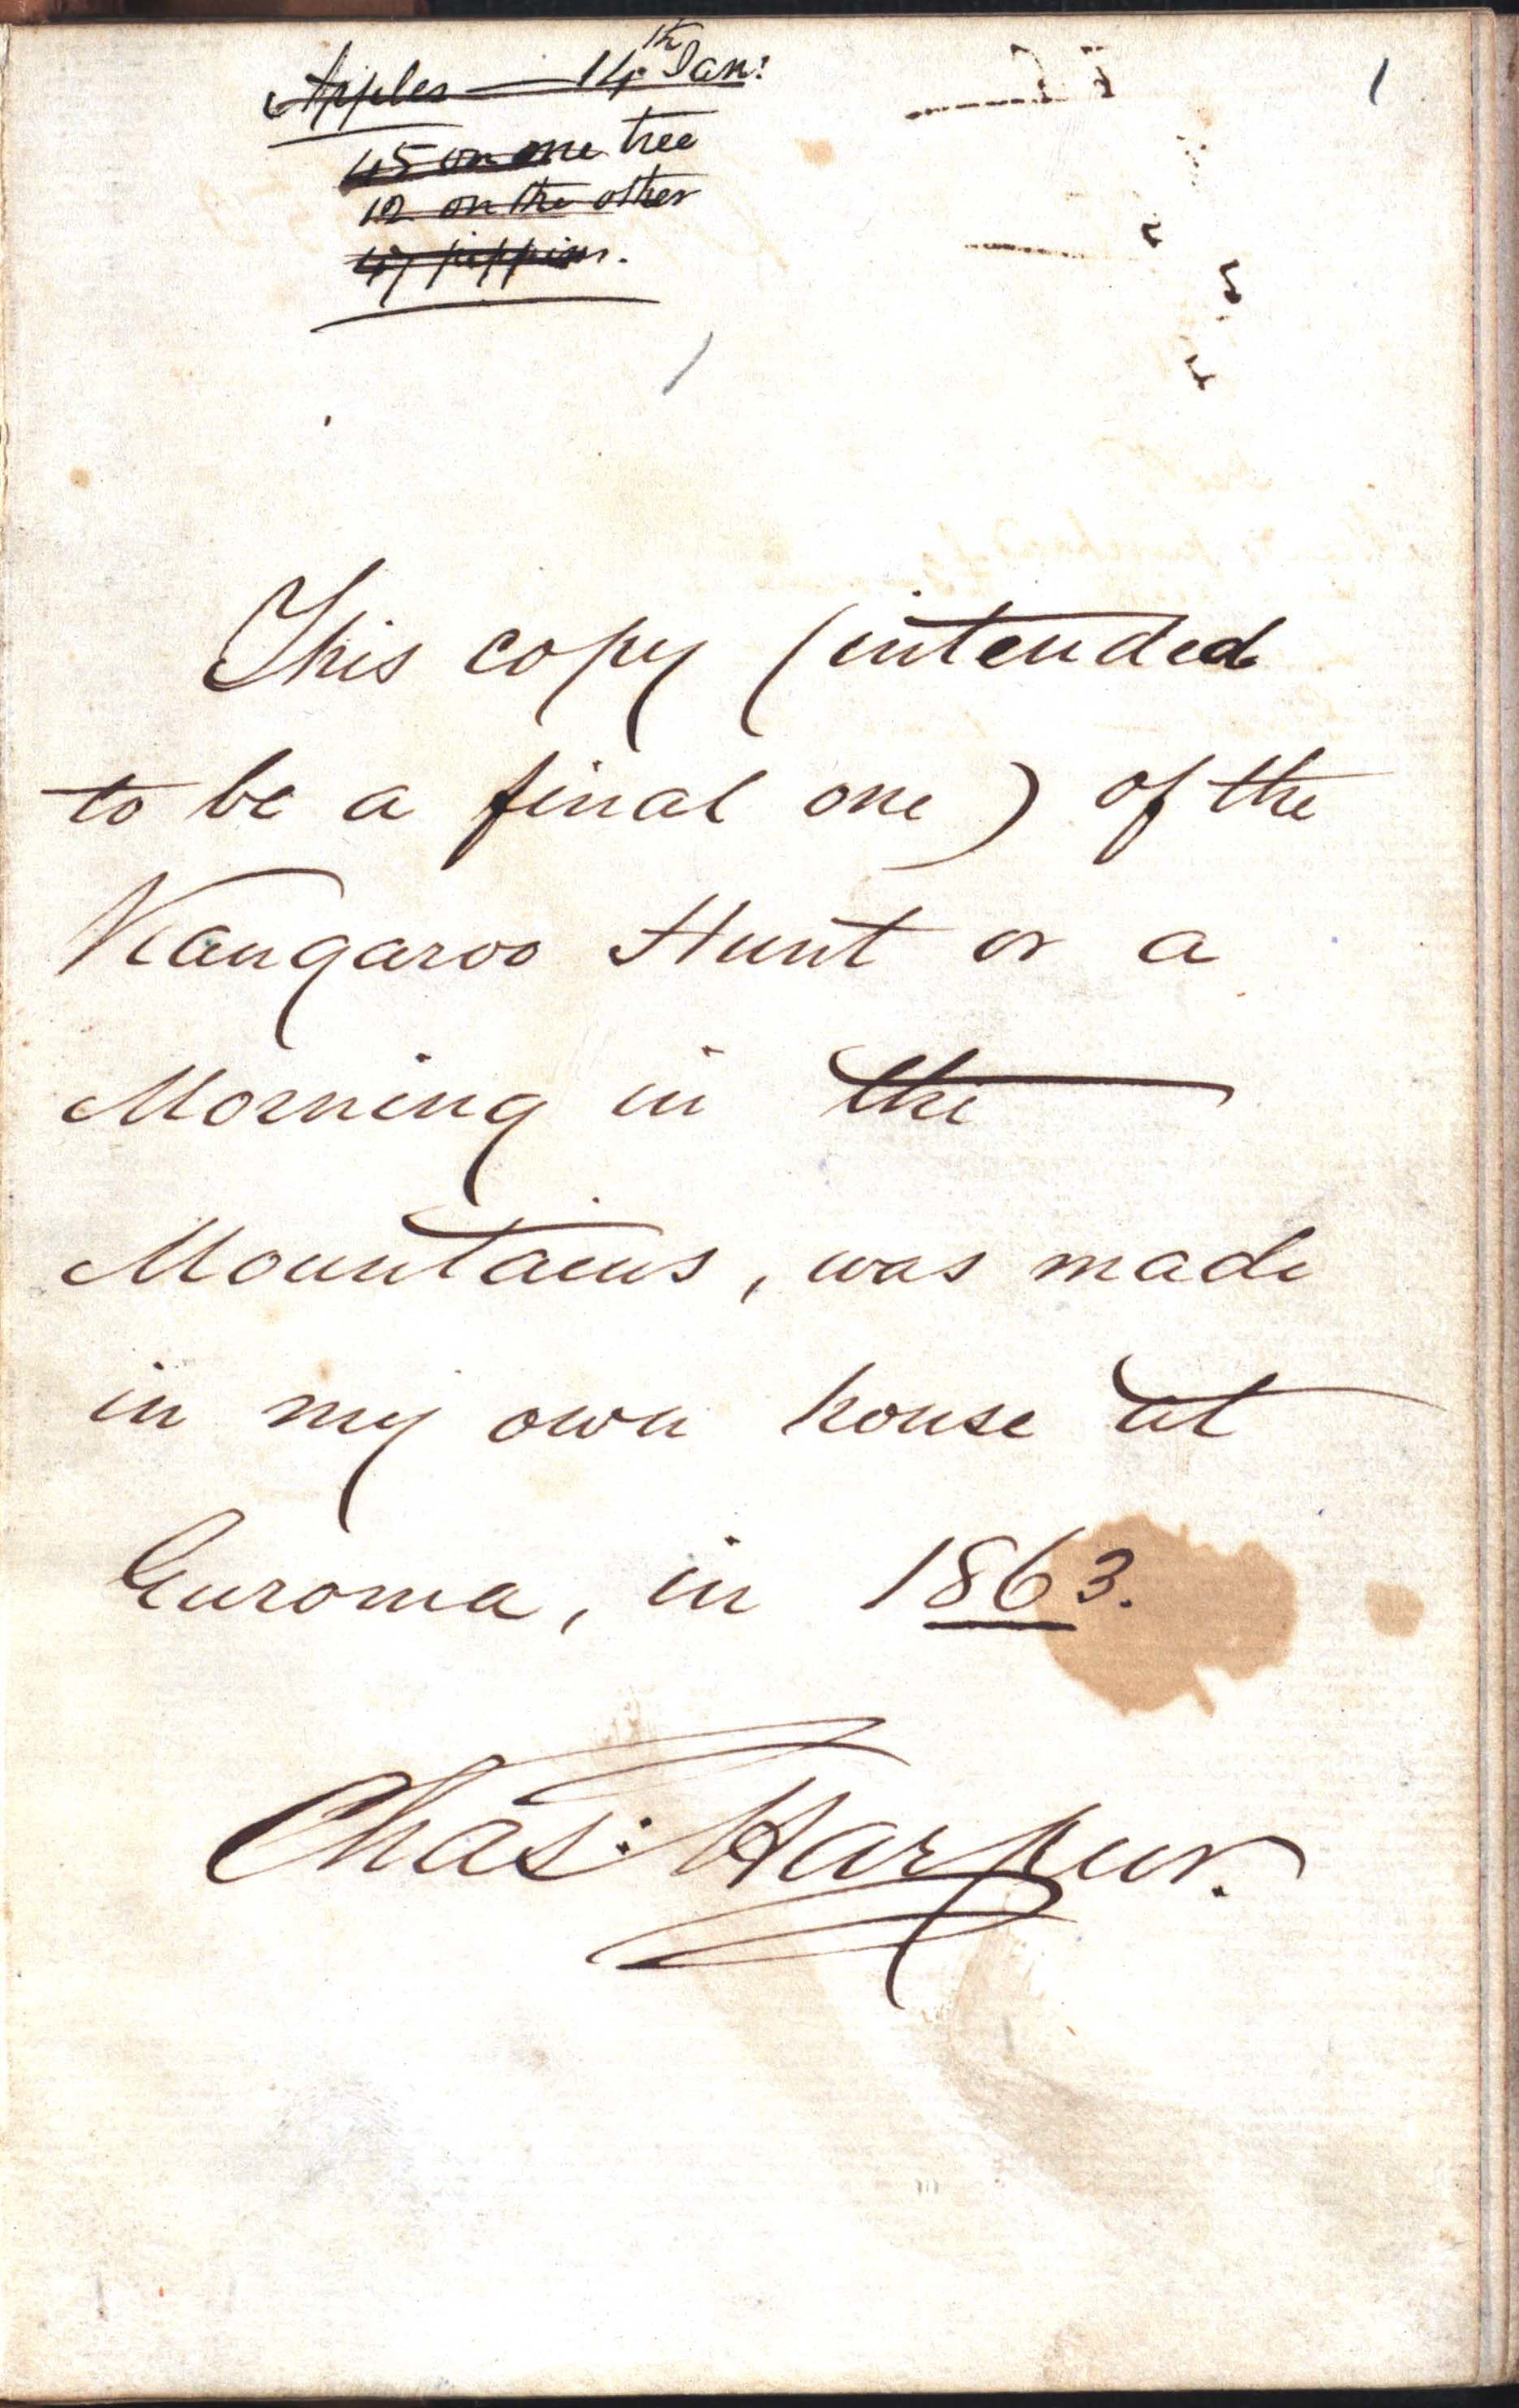 Apples — 14th Jan:
45 on one tree
12 on the other
pippins.
1
This copy (intended
to be a final one) of the
Kangaroo Hunt or a
Morning in the
Mountains, was made
in my own house at
Euroma, in 1863.
Chas: Harpur.